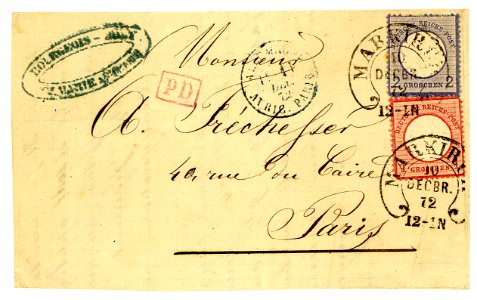 BOURGEOIS
Monsieur
PD
A. Frechesser
49 rue du Caire
Paris
MARKIRCH
10
DECBR.
72
12-1N
REICHS-POST
2 GROSCHEN 2
DEUTSCHE REICHS-POST
1 GROSCHEN 1
MARKIRCH
10
DECBR.
72
12-1N
PARIS